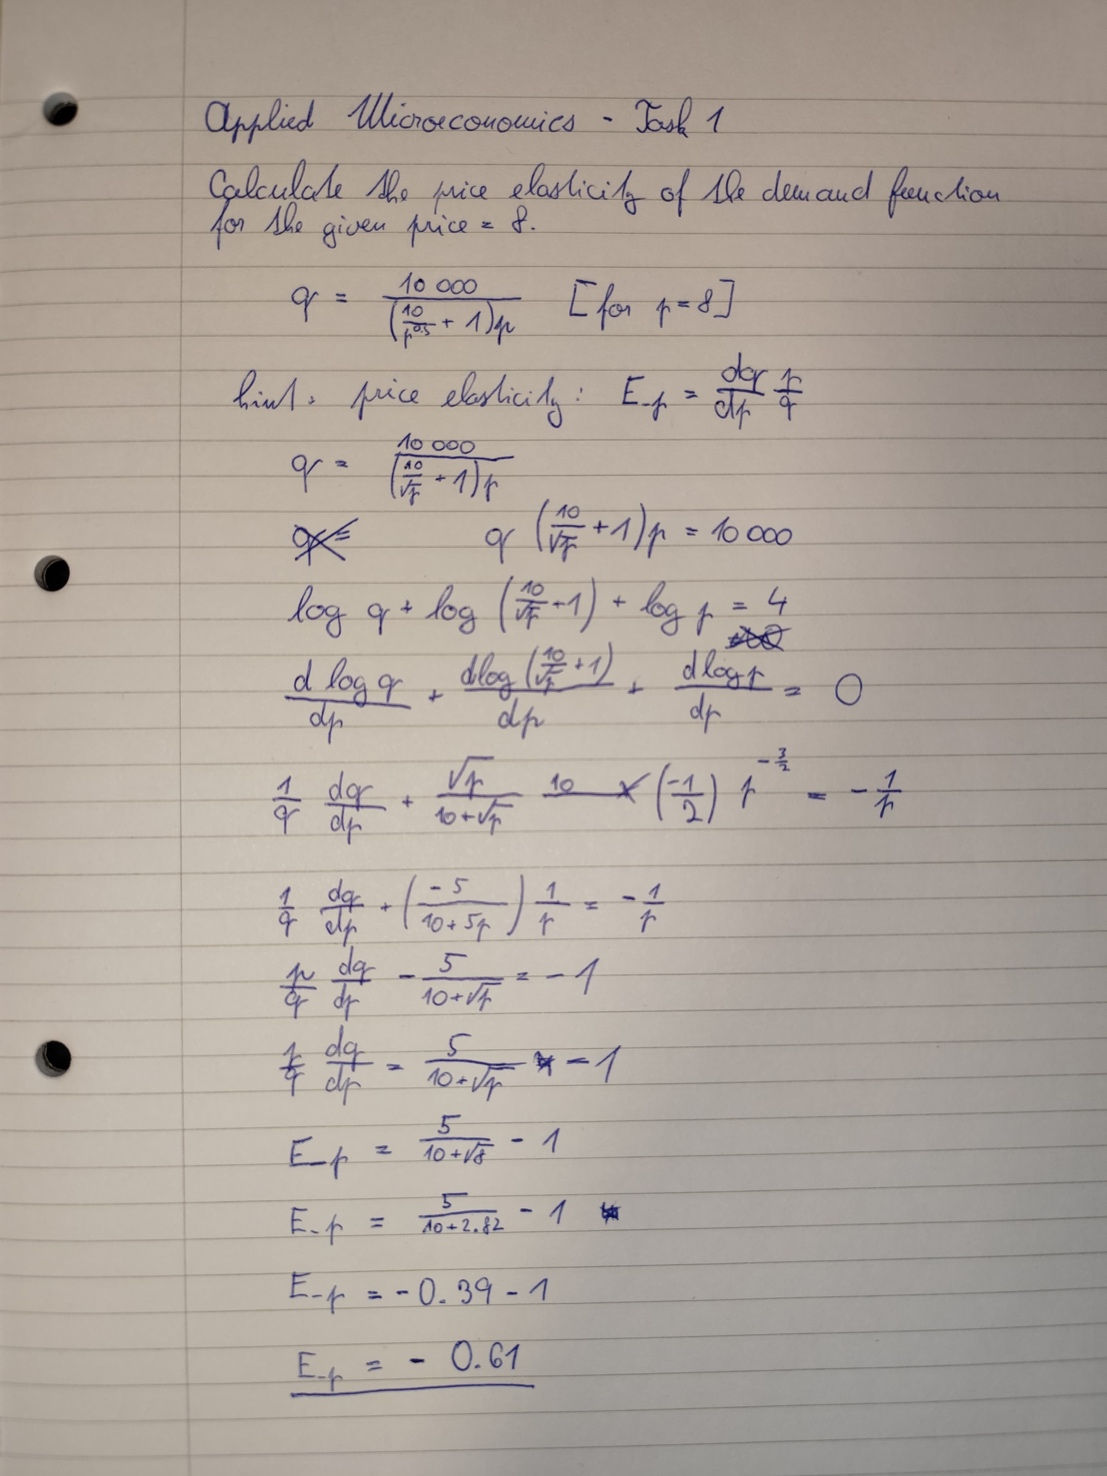 Applied Microeconomics - Task 1
Calculate the price elasticity of the demand function
for the given price = 8.
q = 10 000 / ((10/p^0.5 + 1)p) [for p = 8]
hint: price elasticity: E_p = dq/dp p/q
q = 10 000 / ((10/√p + 1)p)
q (10/√p + 1)p = 10 000
log q + log (10/√p + 1) + log p = 4
d log q/dp + dlog (10/√p + 1)/dp + d log p/dp = 0
1/q dq/dp + √p/(10+√p) 10 × (-1/2) p^(-3/2) = - 1/p
1/q dq/dp + (-5/(10+5p)) 1/p = - 1/p
p/q dq/dp - 5/(10+√p) = - 1
p/q dq/dp = 5/(10+√p) - 1
E_p = 5/(10+√8) - 1
E_p = 5/(10+2.82) - 1
E_p = - 0.39 - 1
E_p = - 0.61